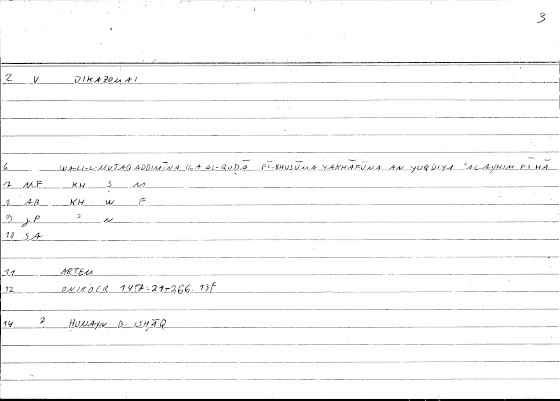 3
2 V DIKAZOMAI
6 WA-LI-L-MUTAQADDIMĪNA ILA AL-QUḌĀ FĪ KHUSŪMA YAKHĀFŪNA AN YUQḌIYA ʿALAYHIM FĪHĀ
7 MF. KH Ṣ M
8 AB KH W F
9 JP ʾ N
10 SA
11 ARTEM
12 ONIROCR
14 2 ḤUNAYN B. ISḤĀQ